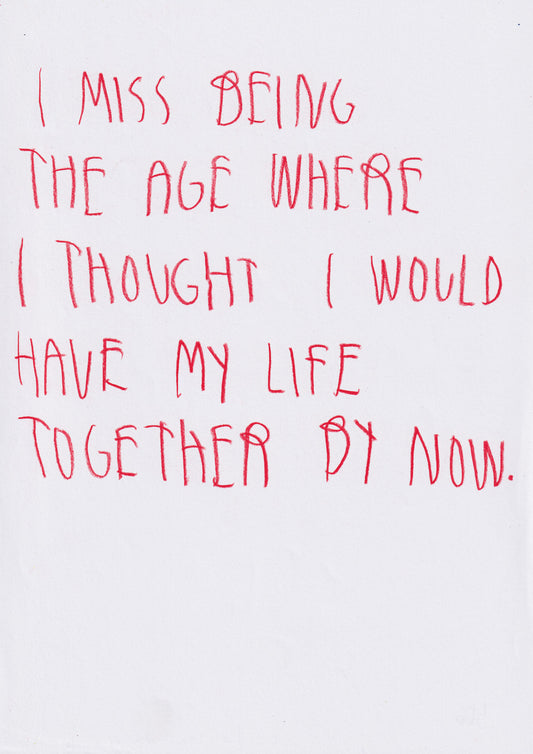 I MISS BEING
THE AGE WHERE
I THOUGHT I WOULD
HAVE MY LIFE
TOGETHER BY NOW.